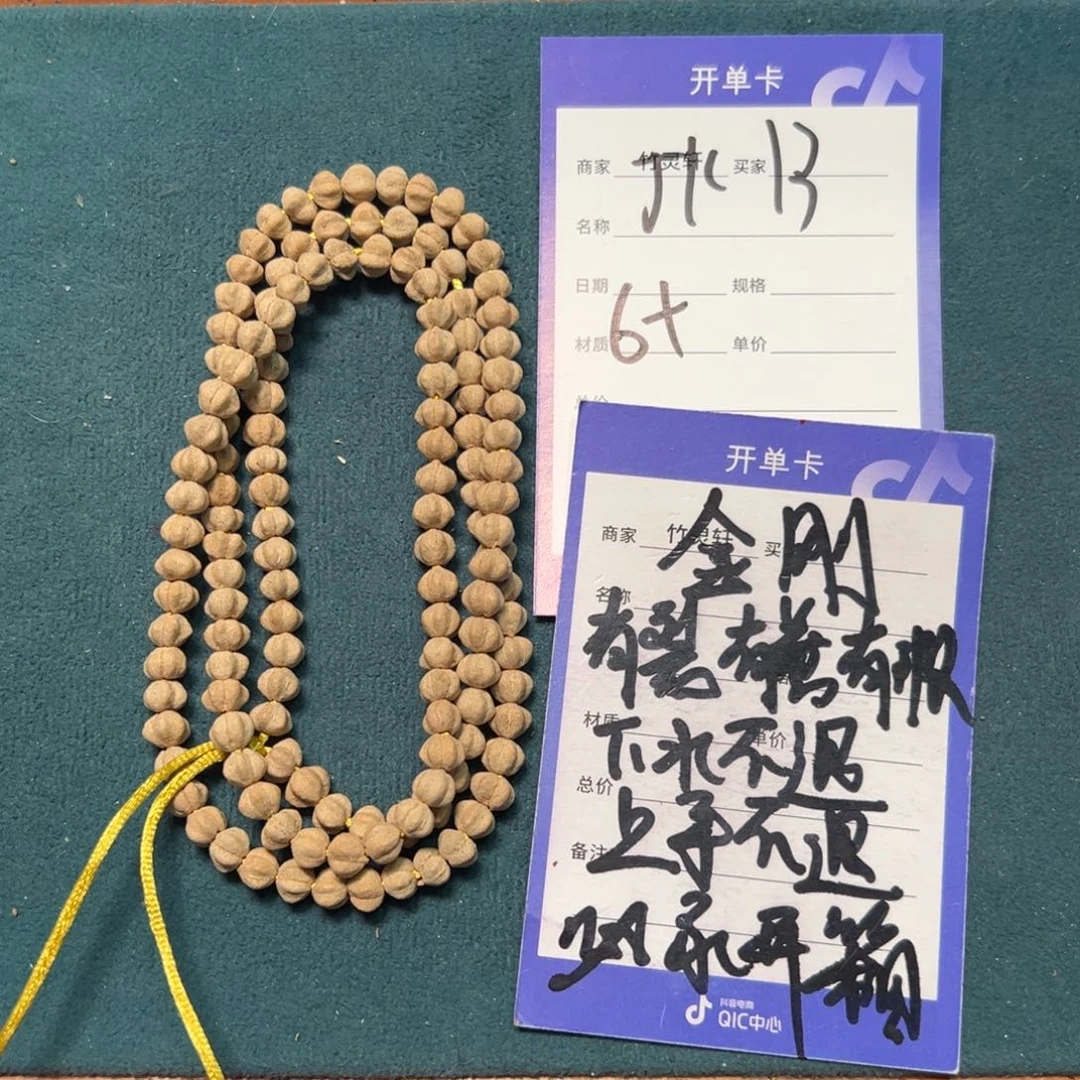 开单卡
商家 竹灵轩 买家
名称
日期 规格
6+
材质 单价
总价
开单卡
商家 竹灵轩 买
金刚
名称
有裂有秧有皲
材质 单价
下水不退
总价
上手不退
备注
开箱
抖音电商
QIC中心